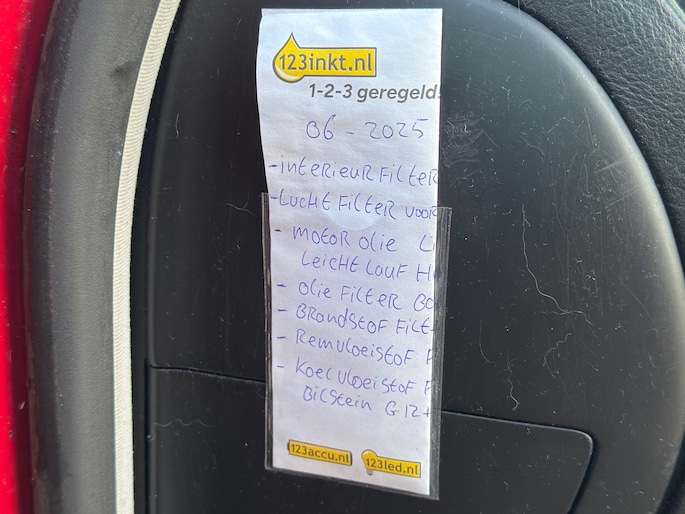 123inkt.nl
1-2-3 geregeld!
06 - 2025
- interieur Filter
- Lucht Filter voor
- motor olie Li
Leicht Lauf H
- olie Filter Bo
- Brandstof Filt
- Remvloeistof F
- Koelvloeistof F
Bilstein G12+
123accu.nl
123led.nl